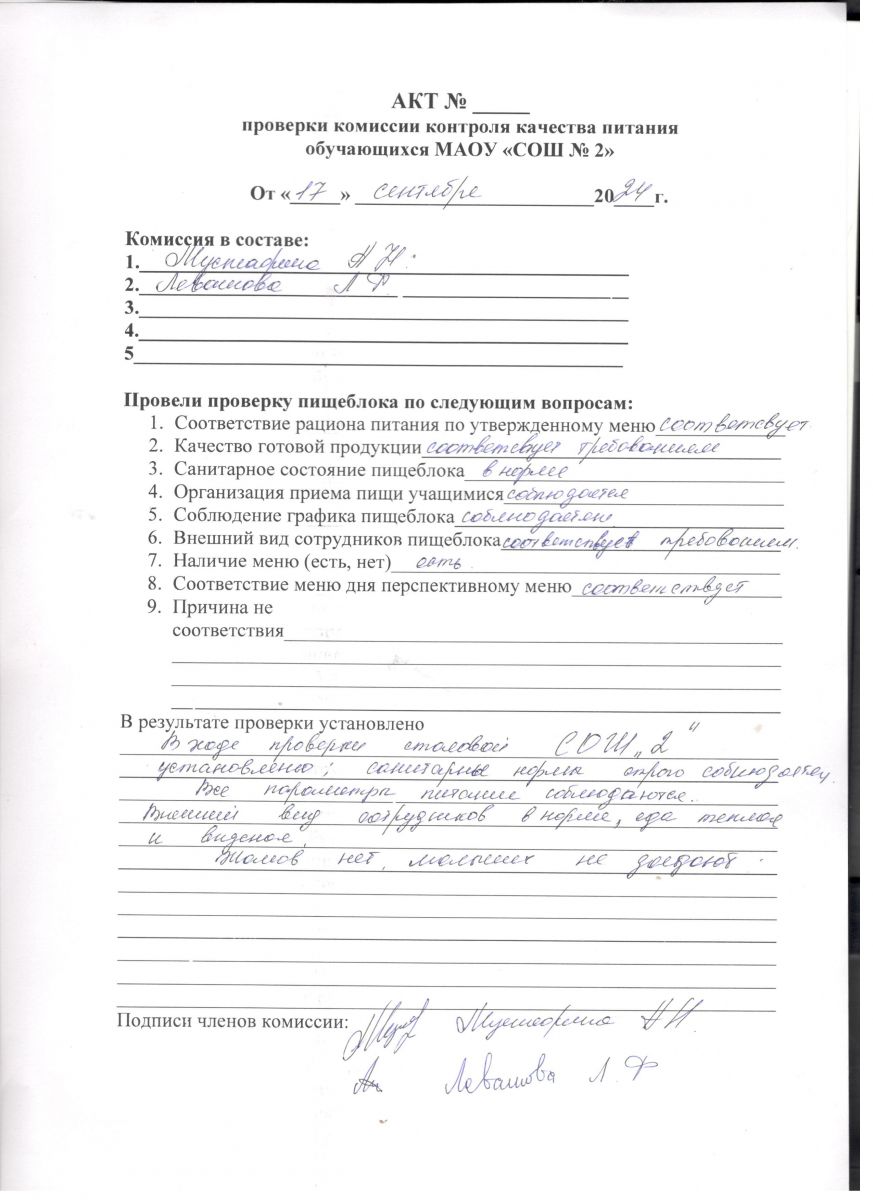 АКТ № _____
проверки комиссии контроля качества питания
обучающихся МАОУ «СОШ № 2»
От «17» сентября 2024 г.
Комиссия в составе:
1. Мустафина Н Н.
2. Левашова Л Ф.
3.
4.
5
Провели проверку пищеблока по следующим вопросам:
1. Соответствие рациона питания по утвержденному меню соответсвует
2. Качество готовой продукции соответсвует требованиям
3. Санитарное состояние пищеблока в норме
4. Организация приема пищи учащимися соблюдается
5. Соблюдение графика пищеблока соблюдается
6. Внешний вид сотрудников пищеблока соответствует требованиям.
7. Наличие меню (есть, нет) есть.
8. Соответствие меню дня перспективному меню соответствует
9. Причина не
соответствия
В результате проверки установлено
В ходе проверки столовой СОШ „2"
установлено; санитарные нормы строго соблюдаются.
Все параметры питания соблюдаются.
Внешний вид сотрудников в норме, еда теплая
и
нет, не доедают.
Подписи членов комиссии: Мустафина Н Н.
Левашова Л. Ф